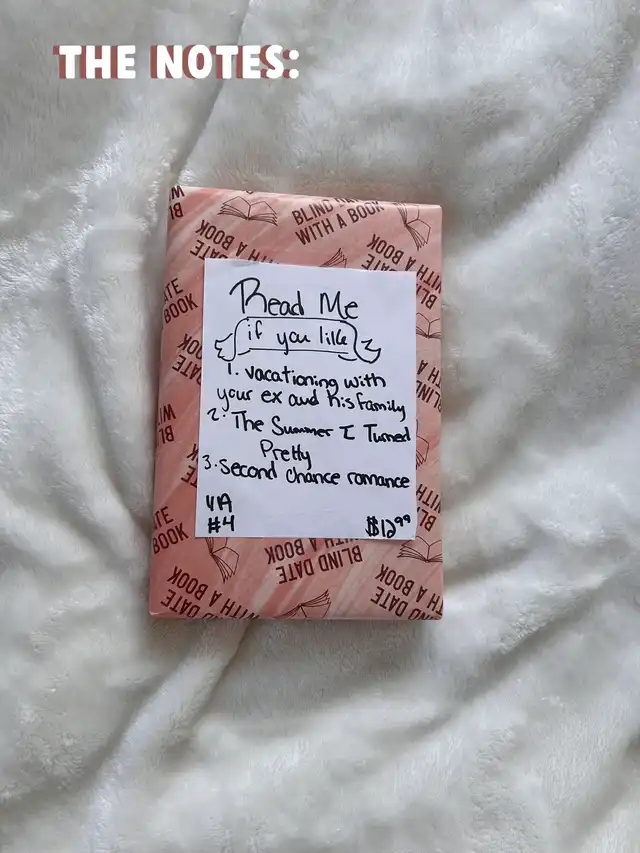 THE NOTES:
BLIND
WITH A BOOK
Read Me
if you like
1. vacationing with
your ex and his family
2. The Summer I Turned
Pretty
3. second chance romance
YA
#4
$12.99
BLIND DATE
WITH A BOOK